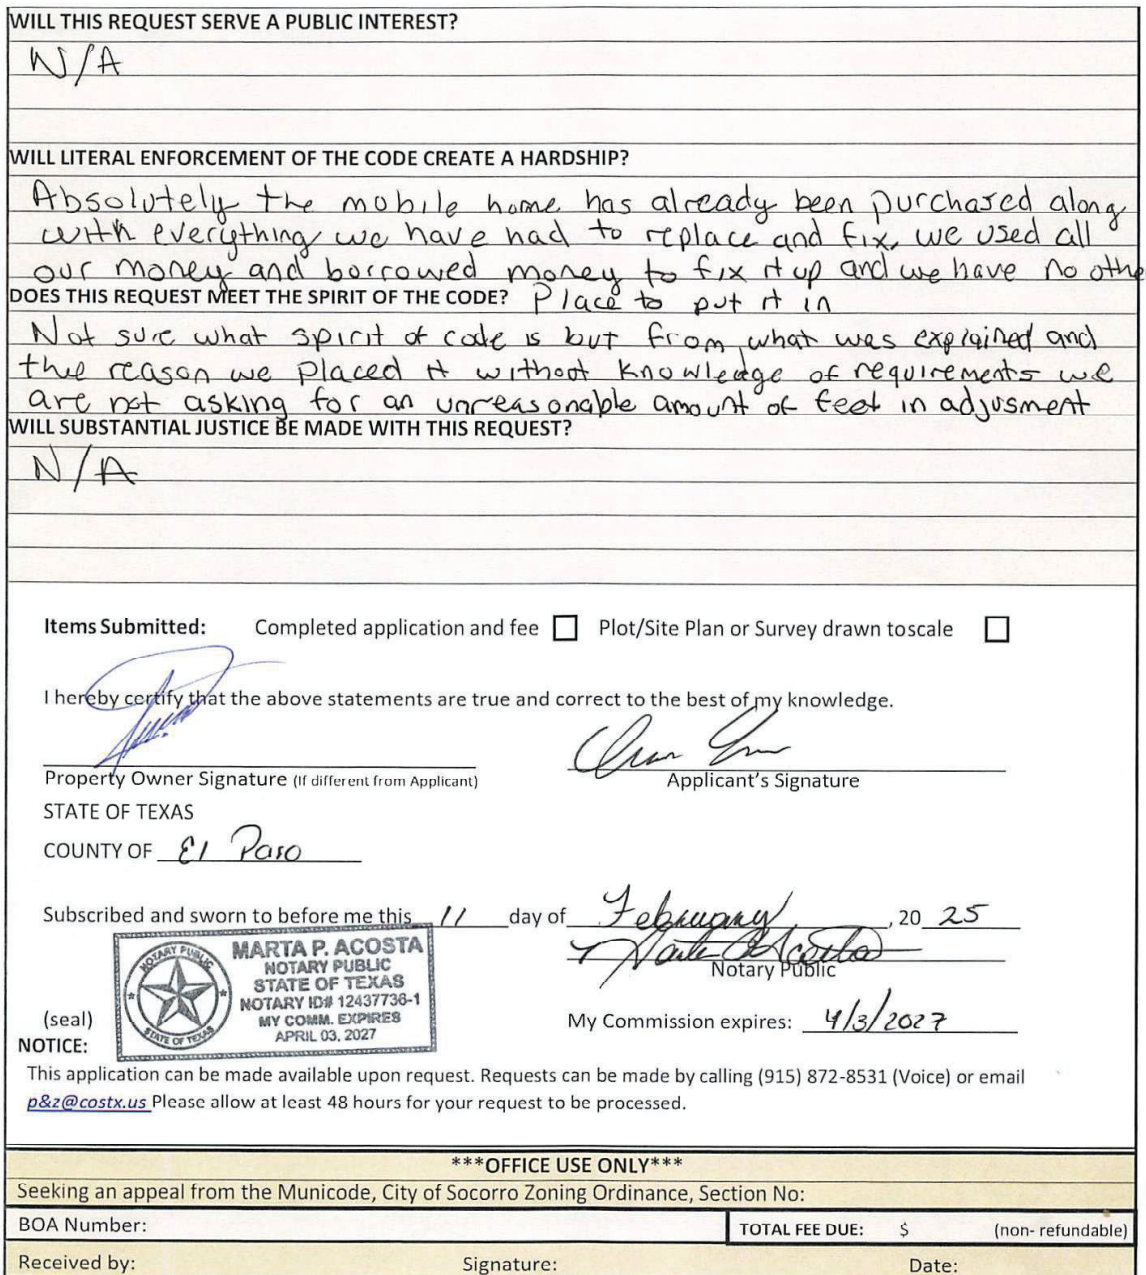 WILL THIS REQUEST SERVE A PUBLIC INTEREST?
N/A
WILL LITERAL ENFORCEMENT OF THE CODE CREATE A HARDSHIP?
Absolutely the mobile home has already been purchased along
with everything we have had to replace and fix, we used all
our money and borrowed money to fix it up and we have no othe
Place to put it in
DOES THIS REQUEST MEET THE SPIRIT OF THE CODE?
Not sure what spirit of code is but from what was explained and
the reason we placed it without knowledge of requirements we
are not asking for an unreasonable amount of feet in adjusment
WILL SUBSTANTIAL JUSTICE BE MADE WITH THIS REQUEST?
N/A
Items Submitted: Completed application and fee Plot/Site Plan or Survey drawn toscale
I hereby certify that the above statements are true and correct to the best of my knowledge.
Property Owner Signature (If different from Applicant) Applicant's Signature
STATE OF TEXAS
COUNTY OF El Paso
Subscribed and sworn to before me this 11 day of February, 20 25
Notary Public
NOTARY PUBLIC
STATE OF TEXAS
MARTA P. ACOSTA
NOTARY PUBLIC
STATE OF TEXAS
NOTARY ID# 12437736-1
MY COMM. EXPIRES
APRIL 03, 2027
(seal) My Commission expires: 4/3/2027
NOTICE:
This application can be made available upon request. Requests can be made by calling (915) 872-8531 (Voice) or email
p&z@costx.us Please allow at least 48 hours for your request to be processed.
***OFFICE USE ONLY***
Seeking an appeal from the Municode, City of Socorro Zoning Ordinance, Section No:
BOA Number: TOTAL FEE DUE: $ (non- refundable)
Received by: Signature: Date: